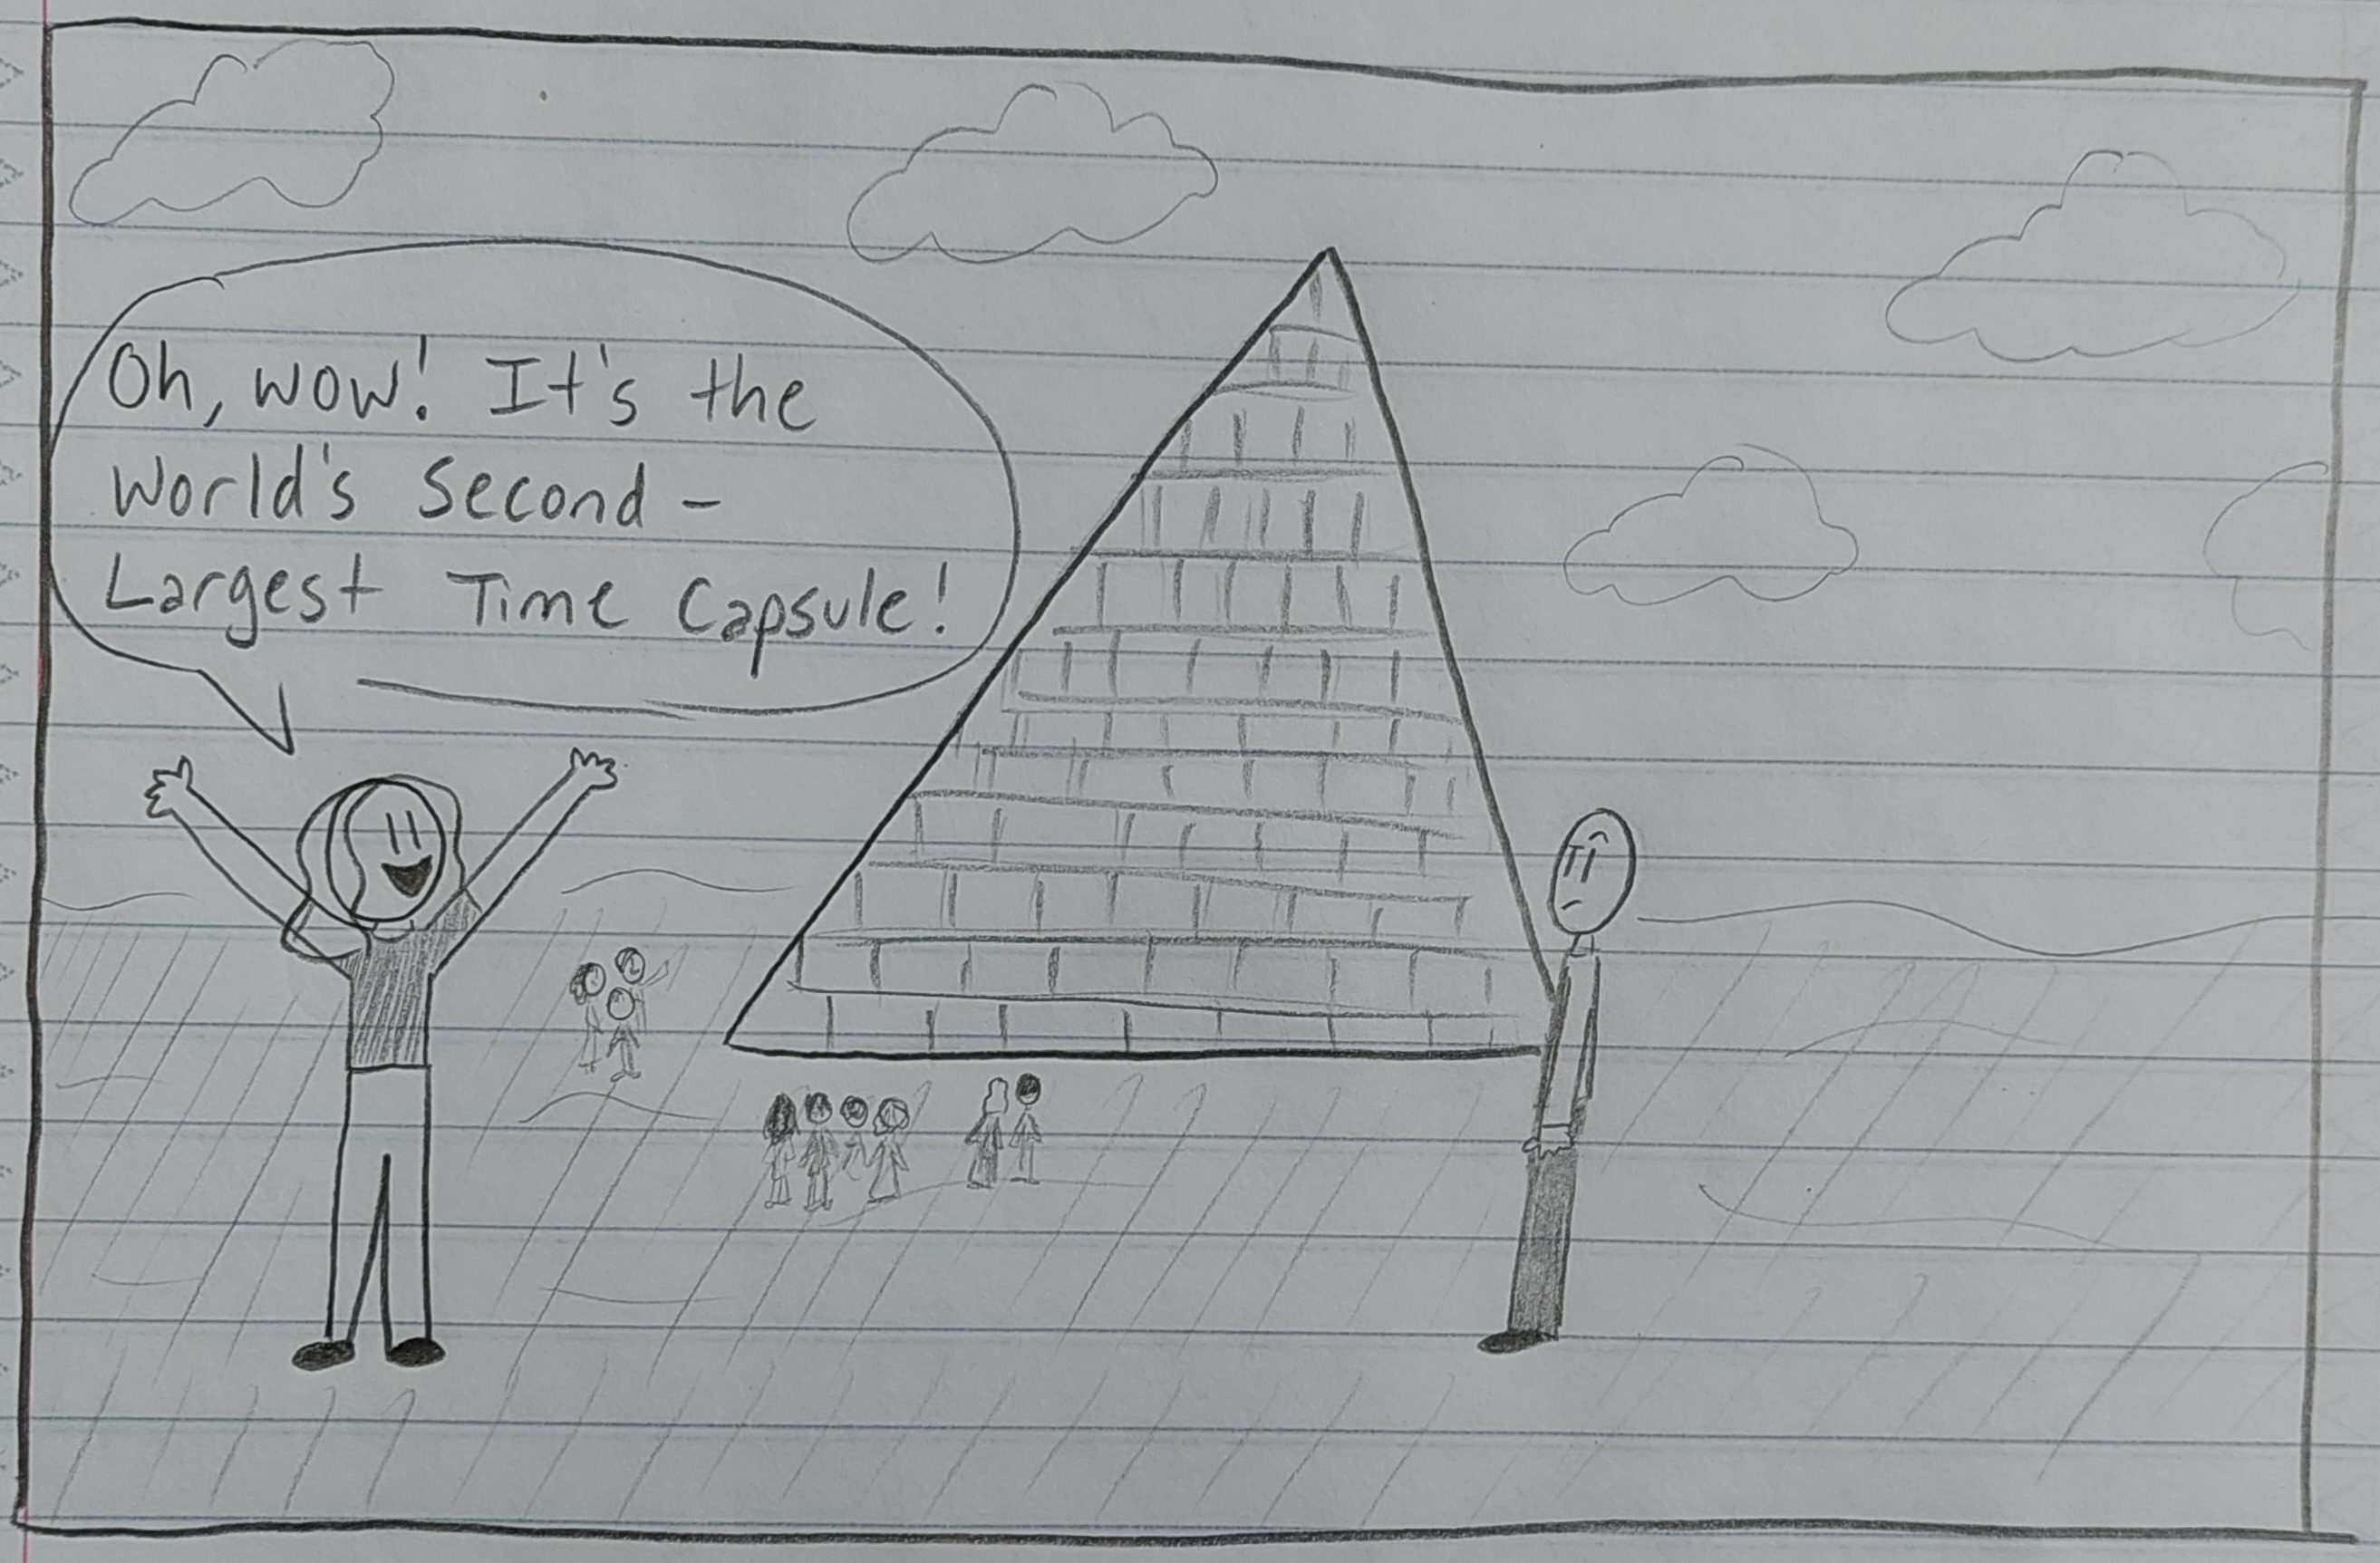 Oh, wow! It's the
World's Second-
Largest Time Capsule!